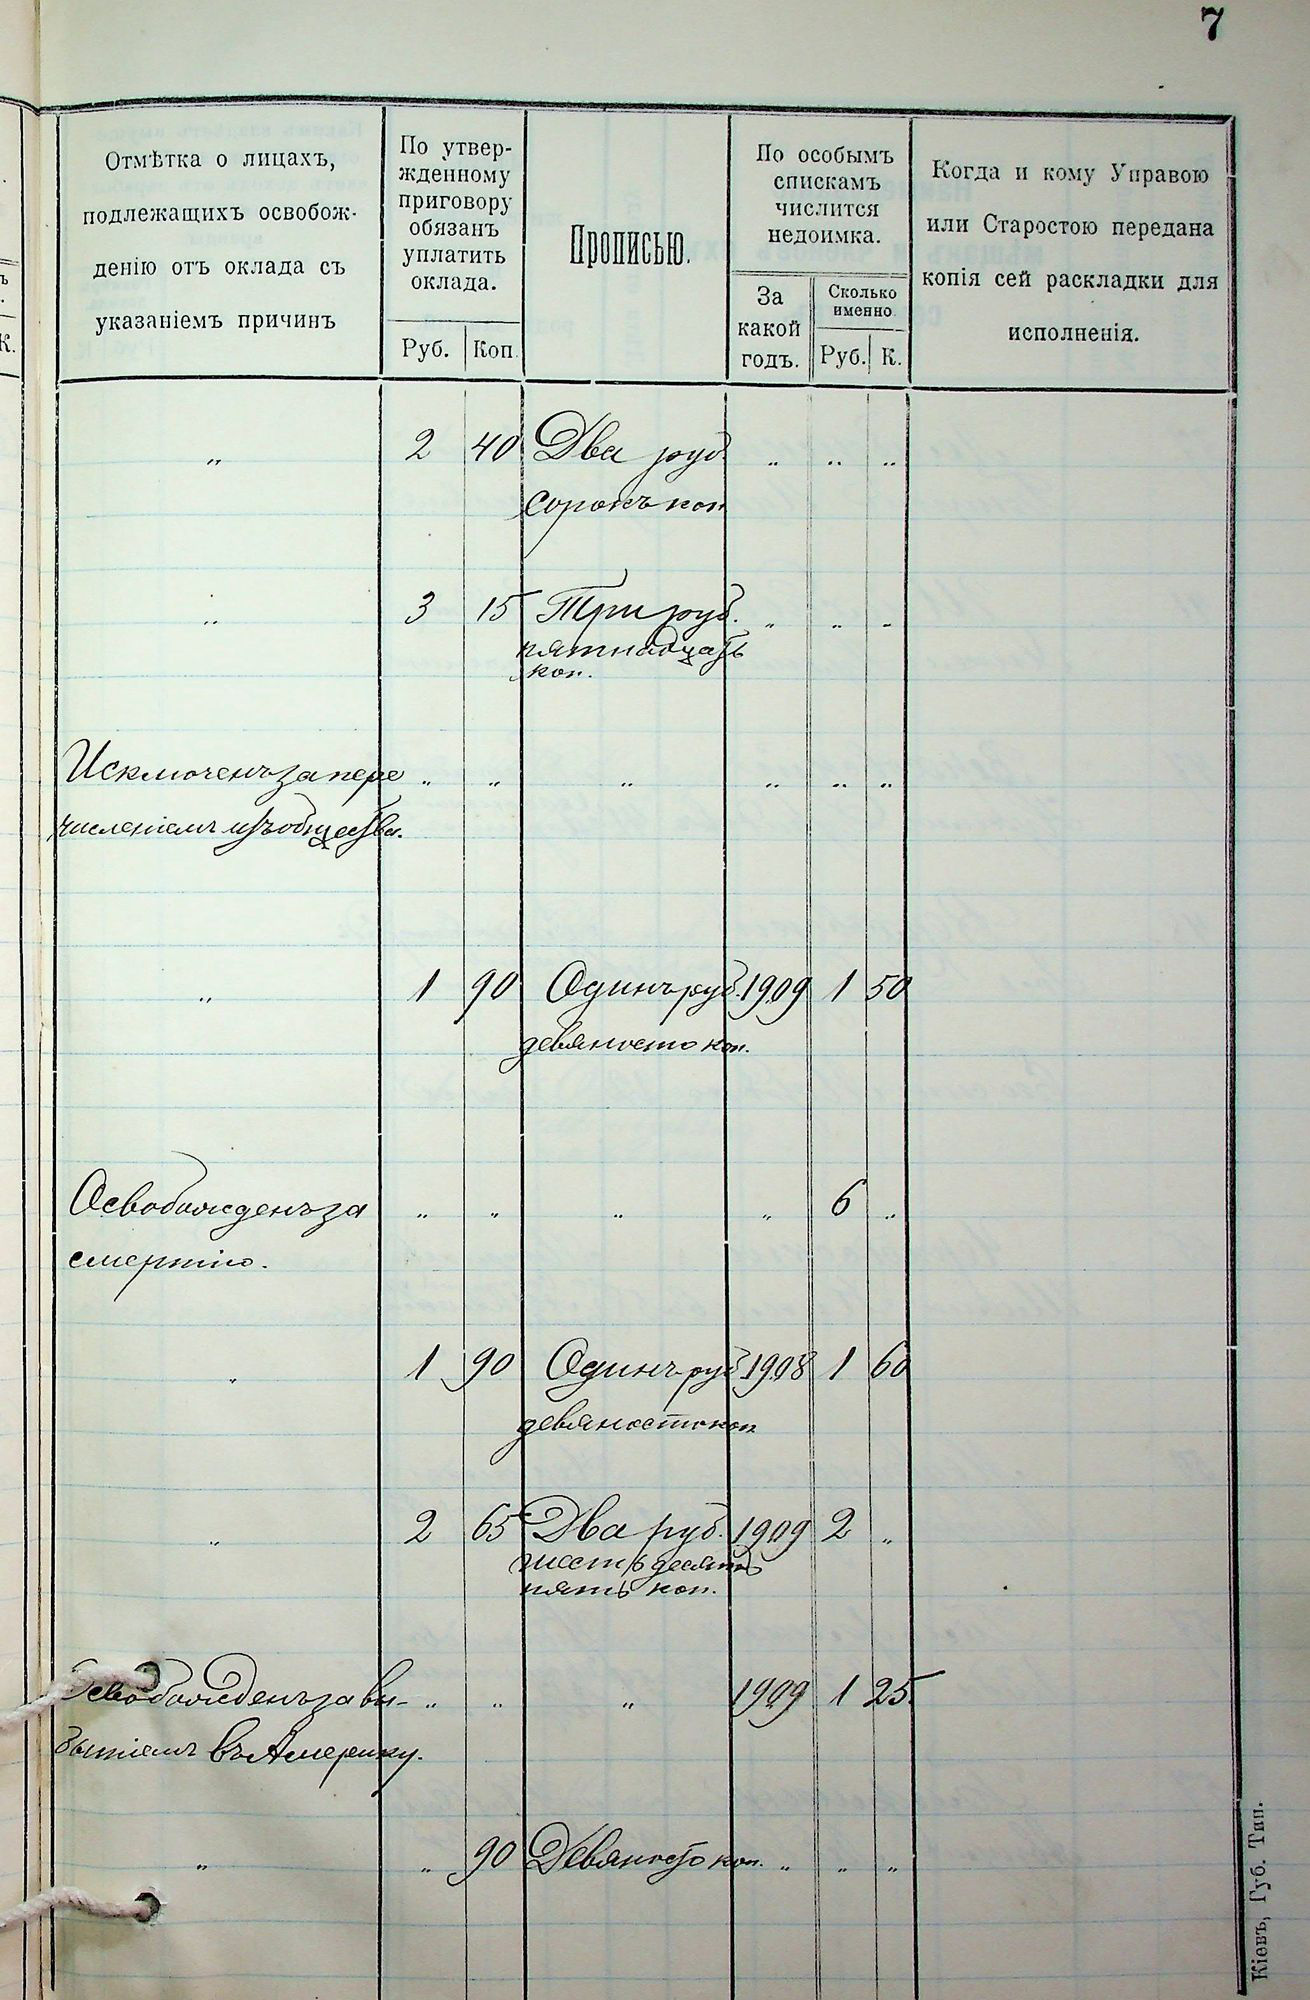 7
Отмѣтка о лицахъ,
подлежащихъ освобож-
денію отъ оклада съ
указаніемъ причинъ
По утвер-
жденному
приговору
обязанъ
уплатить
оклада.
Руб. Коп.
Прописью.
По особымъ
спискамъ
числится
недоимка.
За
какой
годъ.
Сколько
именно.
Руб. К.
Когда и кому Управою
или Старостою передана
копія сей раскладки для
исполненія.
К.
„ 2 40 Два руб. „ „ „
сорокъ коп
„ 3 15 Три руб. „ „ „
пятнадцать
коп.
Исключенъ за пере „ „ „ „ „ „
численіемъ изъ общества.
„ 1 90 Одинъ руб. 1909 1 50
девяносто коп.
Освобожденъ за „ „ „ „ 6 „
смертію.
„ 1 90 Одинъ руб 1908 1 60
девяносто коп
„ 2 65 Два руб. 1909 2 „
шестьдесятъ
пять коп.
Освобожденъ за вы- „ „ „ 1909 1 25.
бытіемъ въ Америку.
„ „ 90 Девяносто коп. „ „ „
Кіевъ, Губ. Тип.